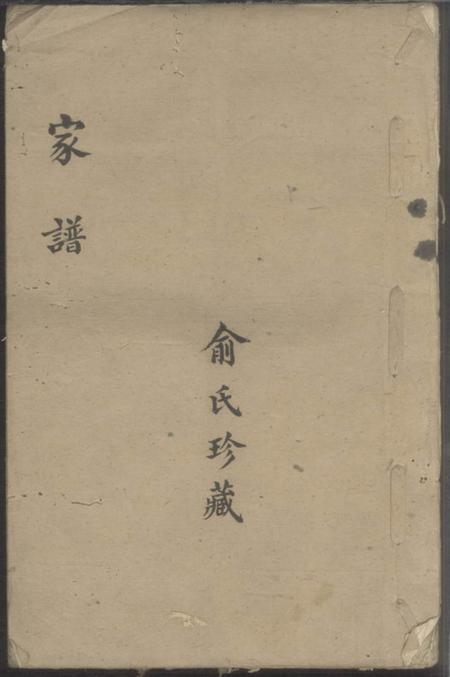 家譜
俞氏珍藏